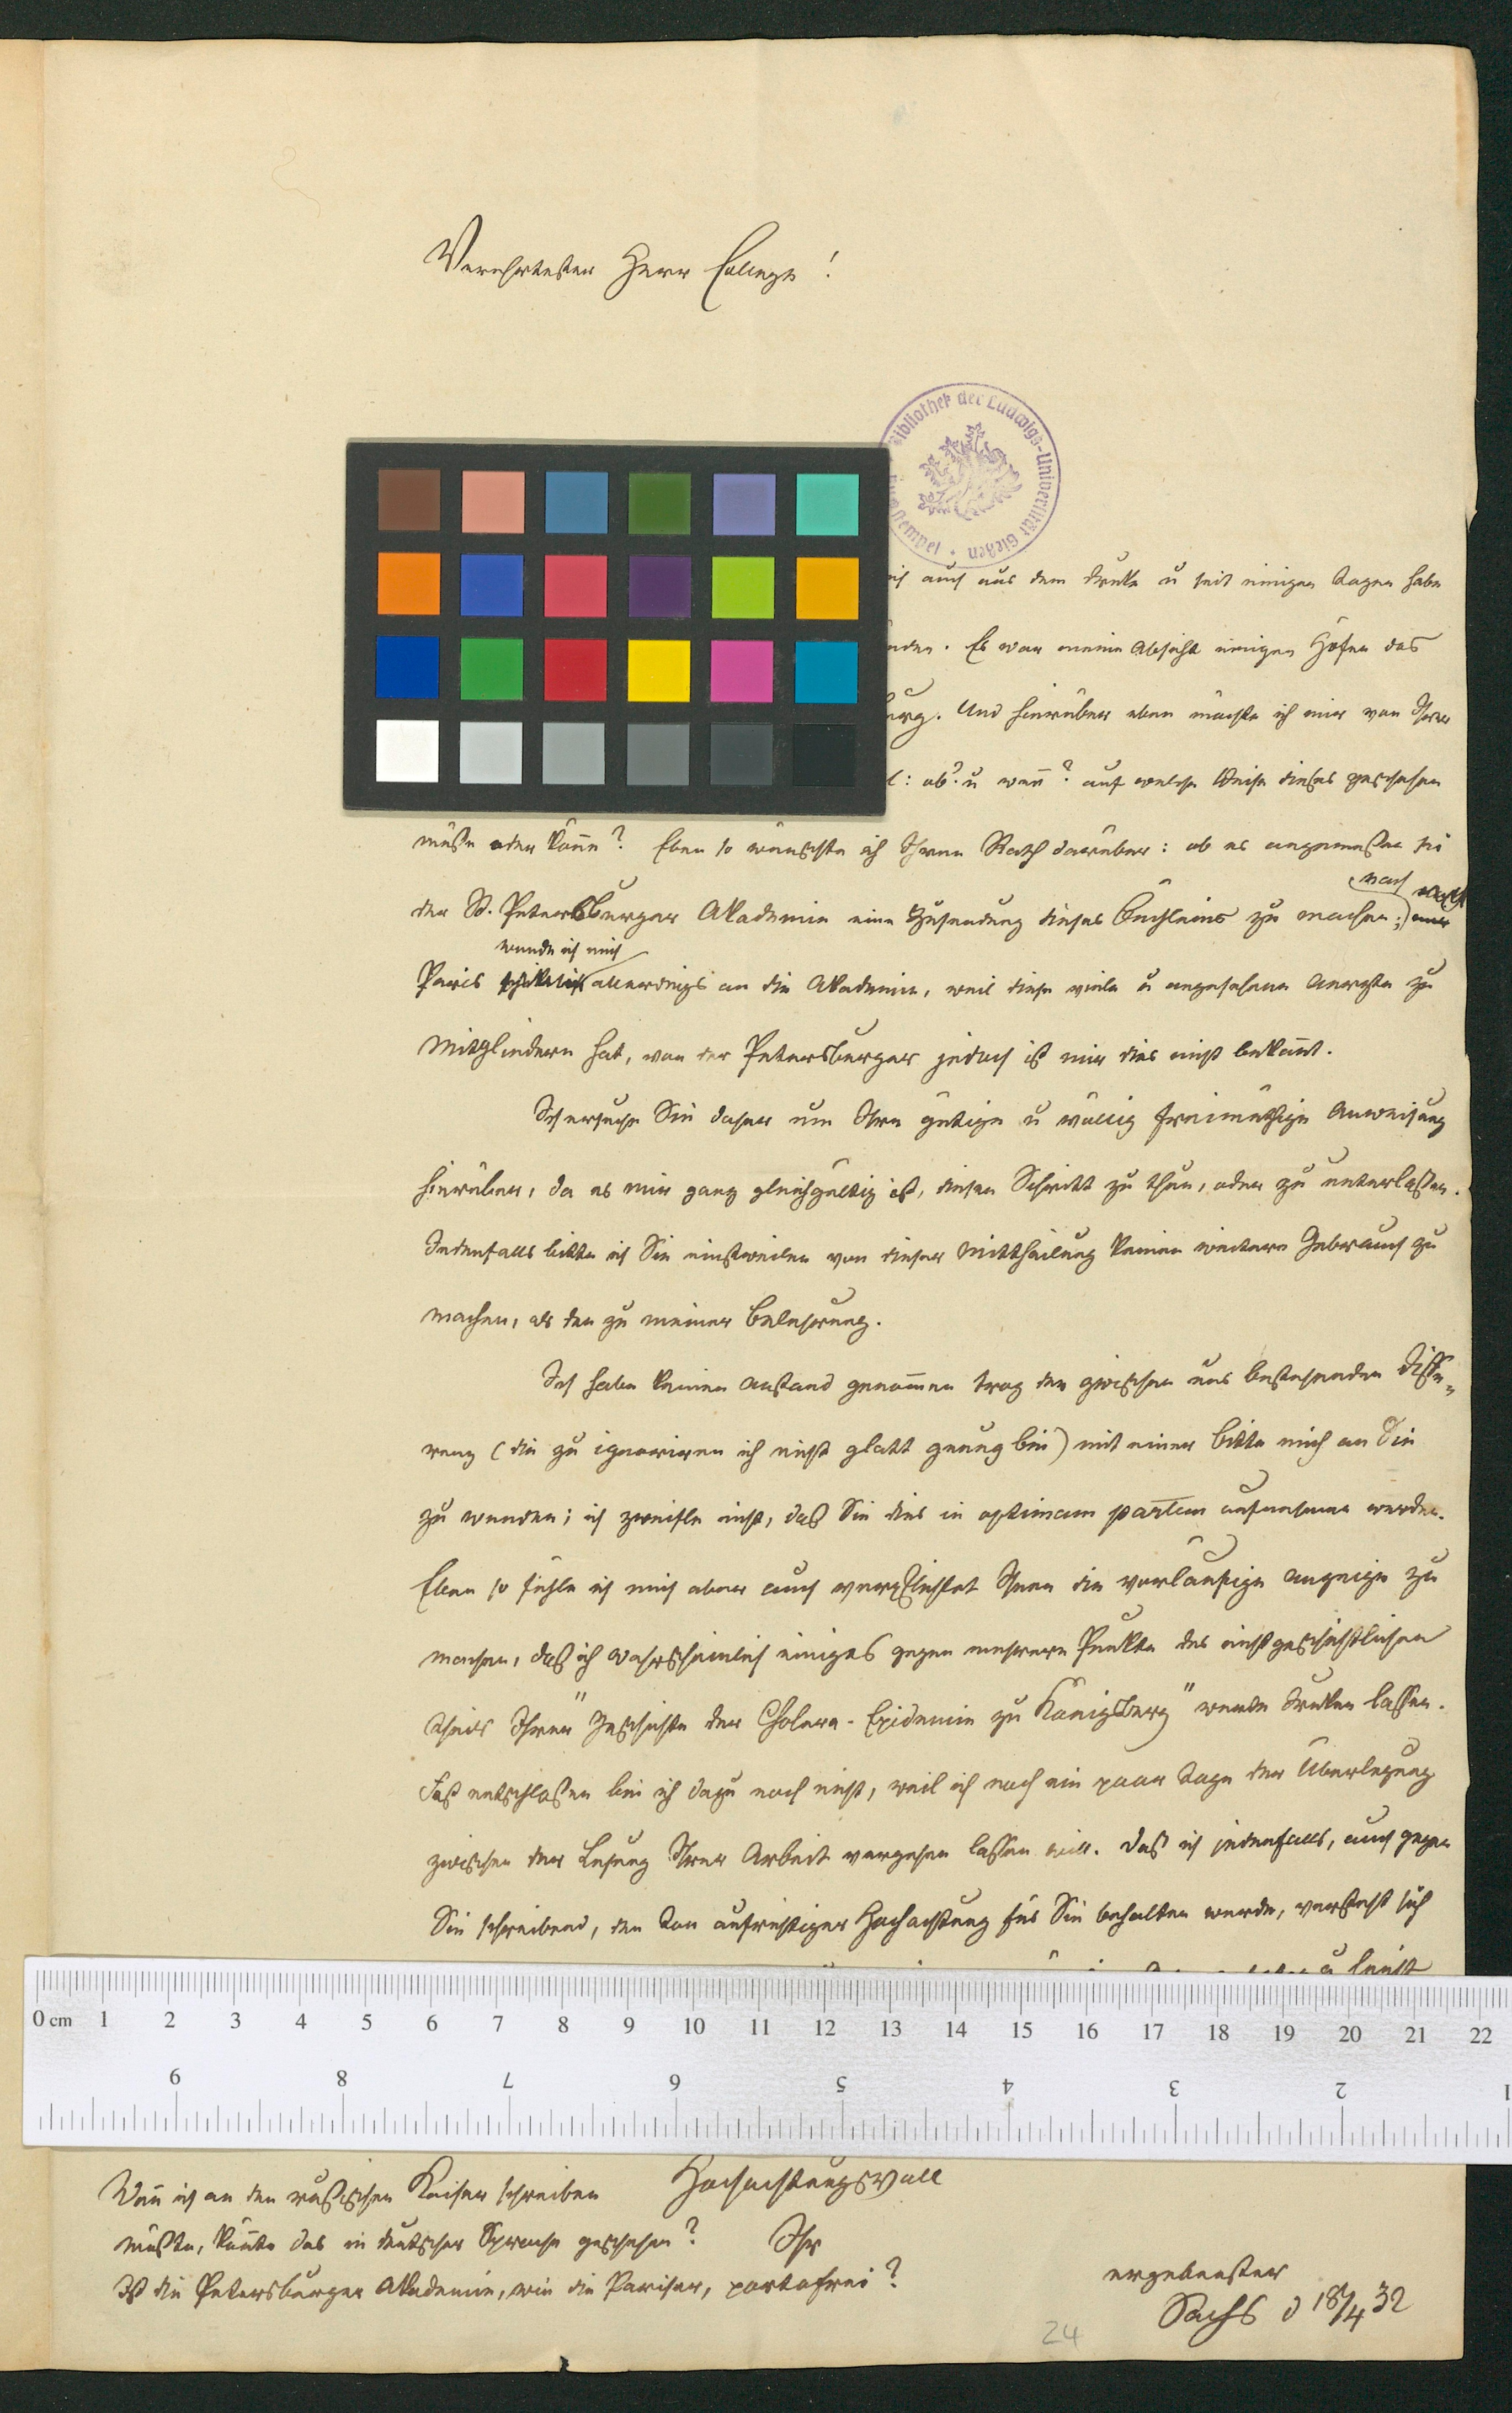 Verehrtester Herr College!
Bibliothek der Ludwigs-Universität Gießen
stempel
auch aus dem Drucke u seit einigen Tagen habe
Es war meine Absicht einigen Höfen das
burg. Und hierüber eben möchte ich mir von Ihrer
: ob? u wañ? auf welche Weise dieses geschehen
müße oder köñe? Eben so wünschte ich Ihren Rath darüber: ob es angemeßen sei
der St. Petersburger Akademie eine Zusendung dieses Büchleins zu machen;
nach
wende ich mich
Paris allerdings an die Akademie, weil diese viele u angesehene Aerzte zu
Mitgliedern hat, von der Petersburger jedoch ist mir dies nicht bekañt.
Ich ersuche Sie daher um Ihre gütige u völlig freimüthige Anweisung
hierüber, da es mir ganz gleichgültig ist, diesen Schritt zu thun, oder zu unterlaßen.
Jedenfalls bitte ich Sie einstweilen von dieser Mittheilung keinen weitern Gebrauch zu
machen, als den zu meiner Belehrung.
Ich habe keinen Anstand genom̃en trotz der zwischen uns bestehenden Diffe-
renz (die zu ignoriren ich nicht glatt genug bin) mit einer Bitte mich an Sie
zu wenden; ich zweifle nicht, daß Sie dies in optimam partem aufnehmen werden.
Eben so fühle ich mich aber auch verpflichtet Ihnen die vorläufige Anzeige zu
machen, daß ich wahrscheinlich einiges gegen mehrere Punkte des nichtgeschichtlichen
Theils Ihrer "Geschichte der Cholera-Epidemie zu Königsberg" werde drucken lassen.
Fest entschloßen bin ich dazu noch nicht, weil ich noch ein paar Tage der Überlegung
zwischen der Lesung Ihrer Arbeit vergehen lassen will. Daß ich jedenfalls, auch gegen
Sie schreibend, den Ton aufrichtiger Hochachtung für Sie behalten werde, versteht sich
u leicht
0 cm 1 2 3 4 5 6 7 8 9 10 11 12 13 14 15 16 17 18 19 20 21 22
9 8 7 6 5 4 3 2 1
Hochachtungsvoll
Ihr
ergebenster
Sachs d 18/4 32
Wañ ich an den rußischen Kaiser schreiben
müßte, köñte das in deutscher Sprache geschehen?
Ist die Petersburger Akademie, wie die Pariser, portofrei?
24